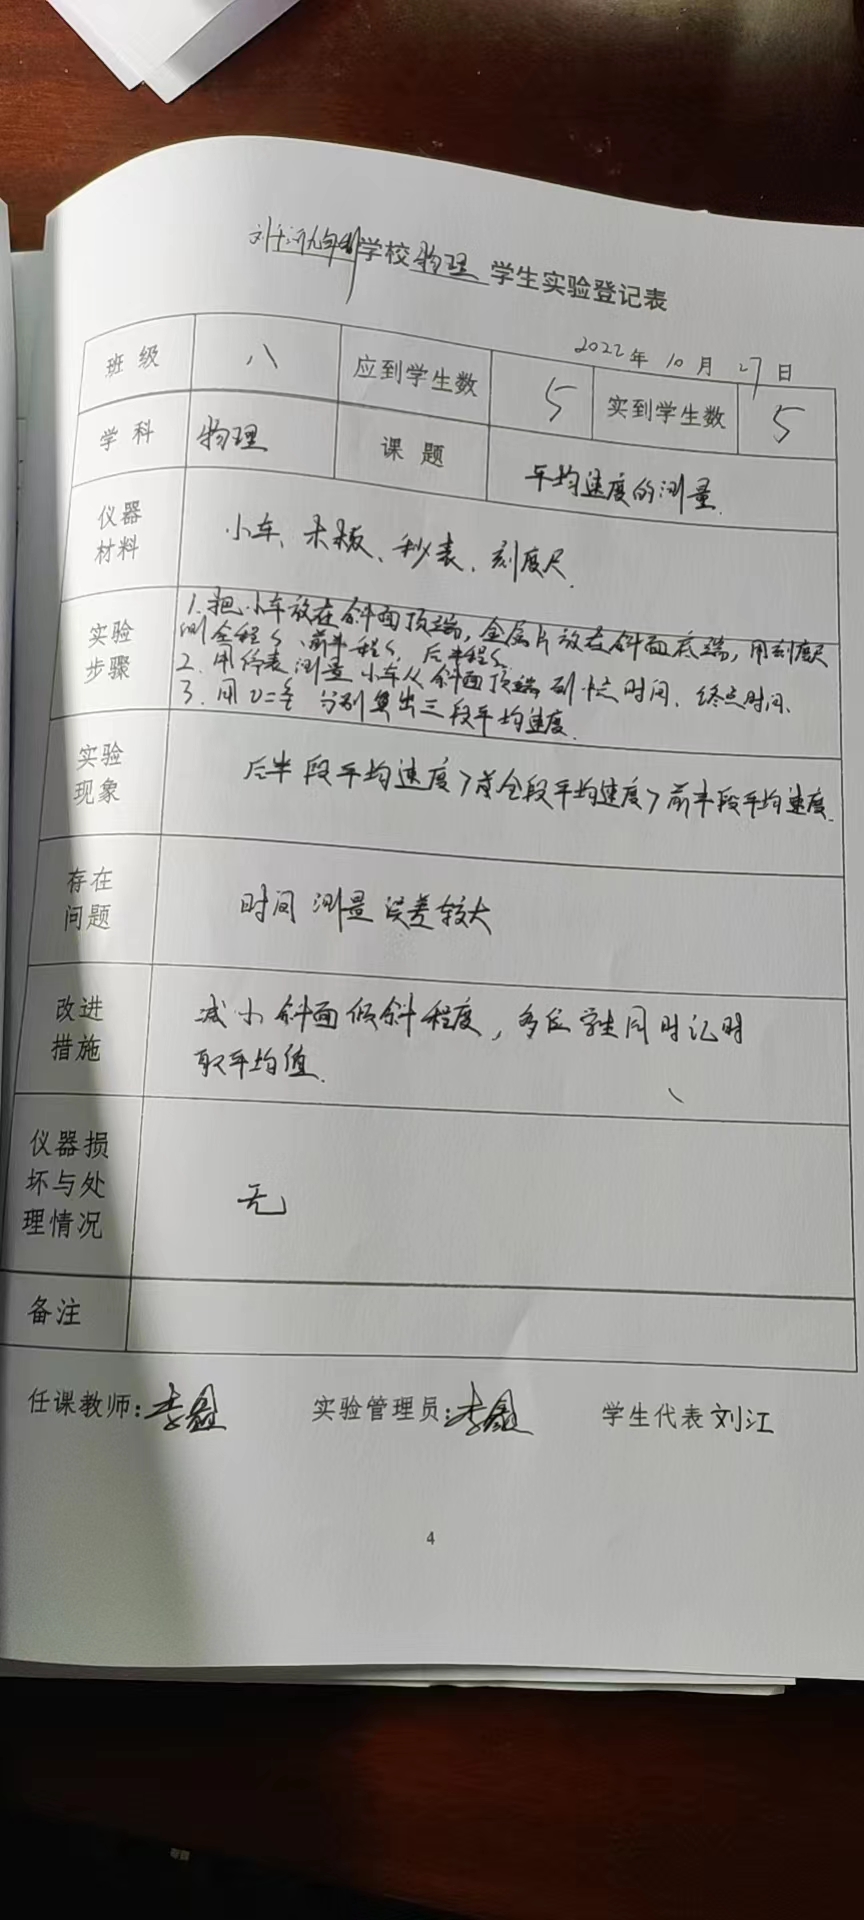 刘千河九年制学校物理学生实验登记表
2022年10月27日
班级 八 应到学生数 5 实到学生数 5
学科 物理 课题 平均速度的测量.
仪器
材料
小车、木板、秒表、刻度尺.
实验
步骤
1.把小车放在斜面顶端,金属片放在斜面底端,用刻度尺
测全程s、前半程s、后半程s.
2.用停表测量小车从斜面顶端到 时间、终点时间.
3.用v=s/t分别算出三段平均速度.
实验
现象
后半段平均速度>全段平均速度>前半段平均速度.
存在
问题
时间测量误差较大
改进
措施
减小斜面倾斜程度,多位学生同时记时
取平均值.
仪器损
坏与处
理情况
无
备注
任课教师:李鑫 实验管理员:李鑫 学生代表 刘江
4